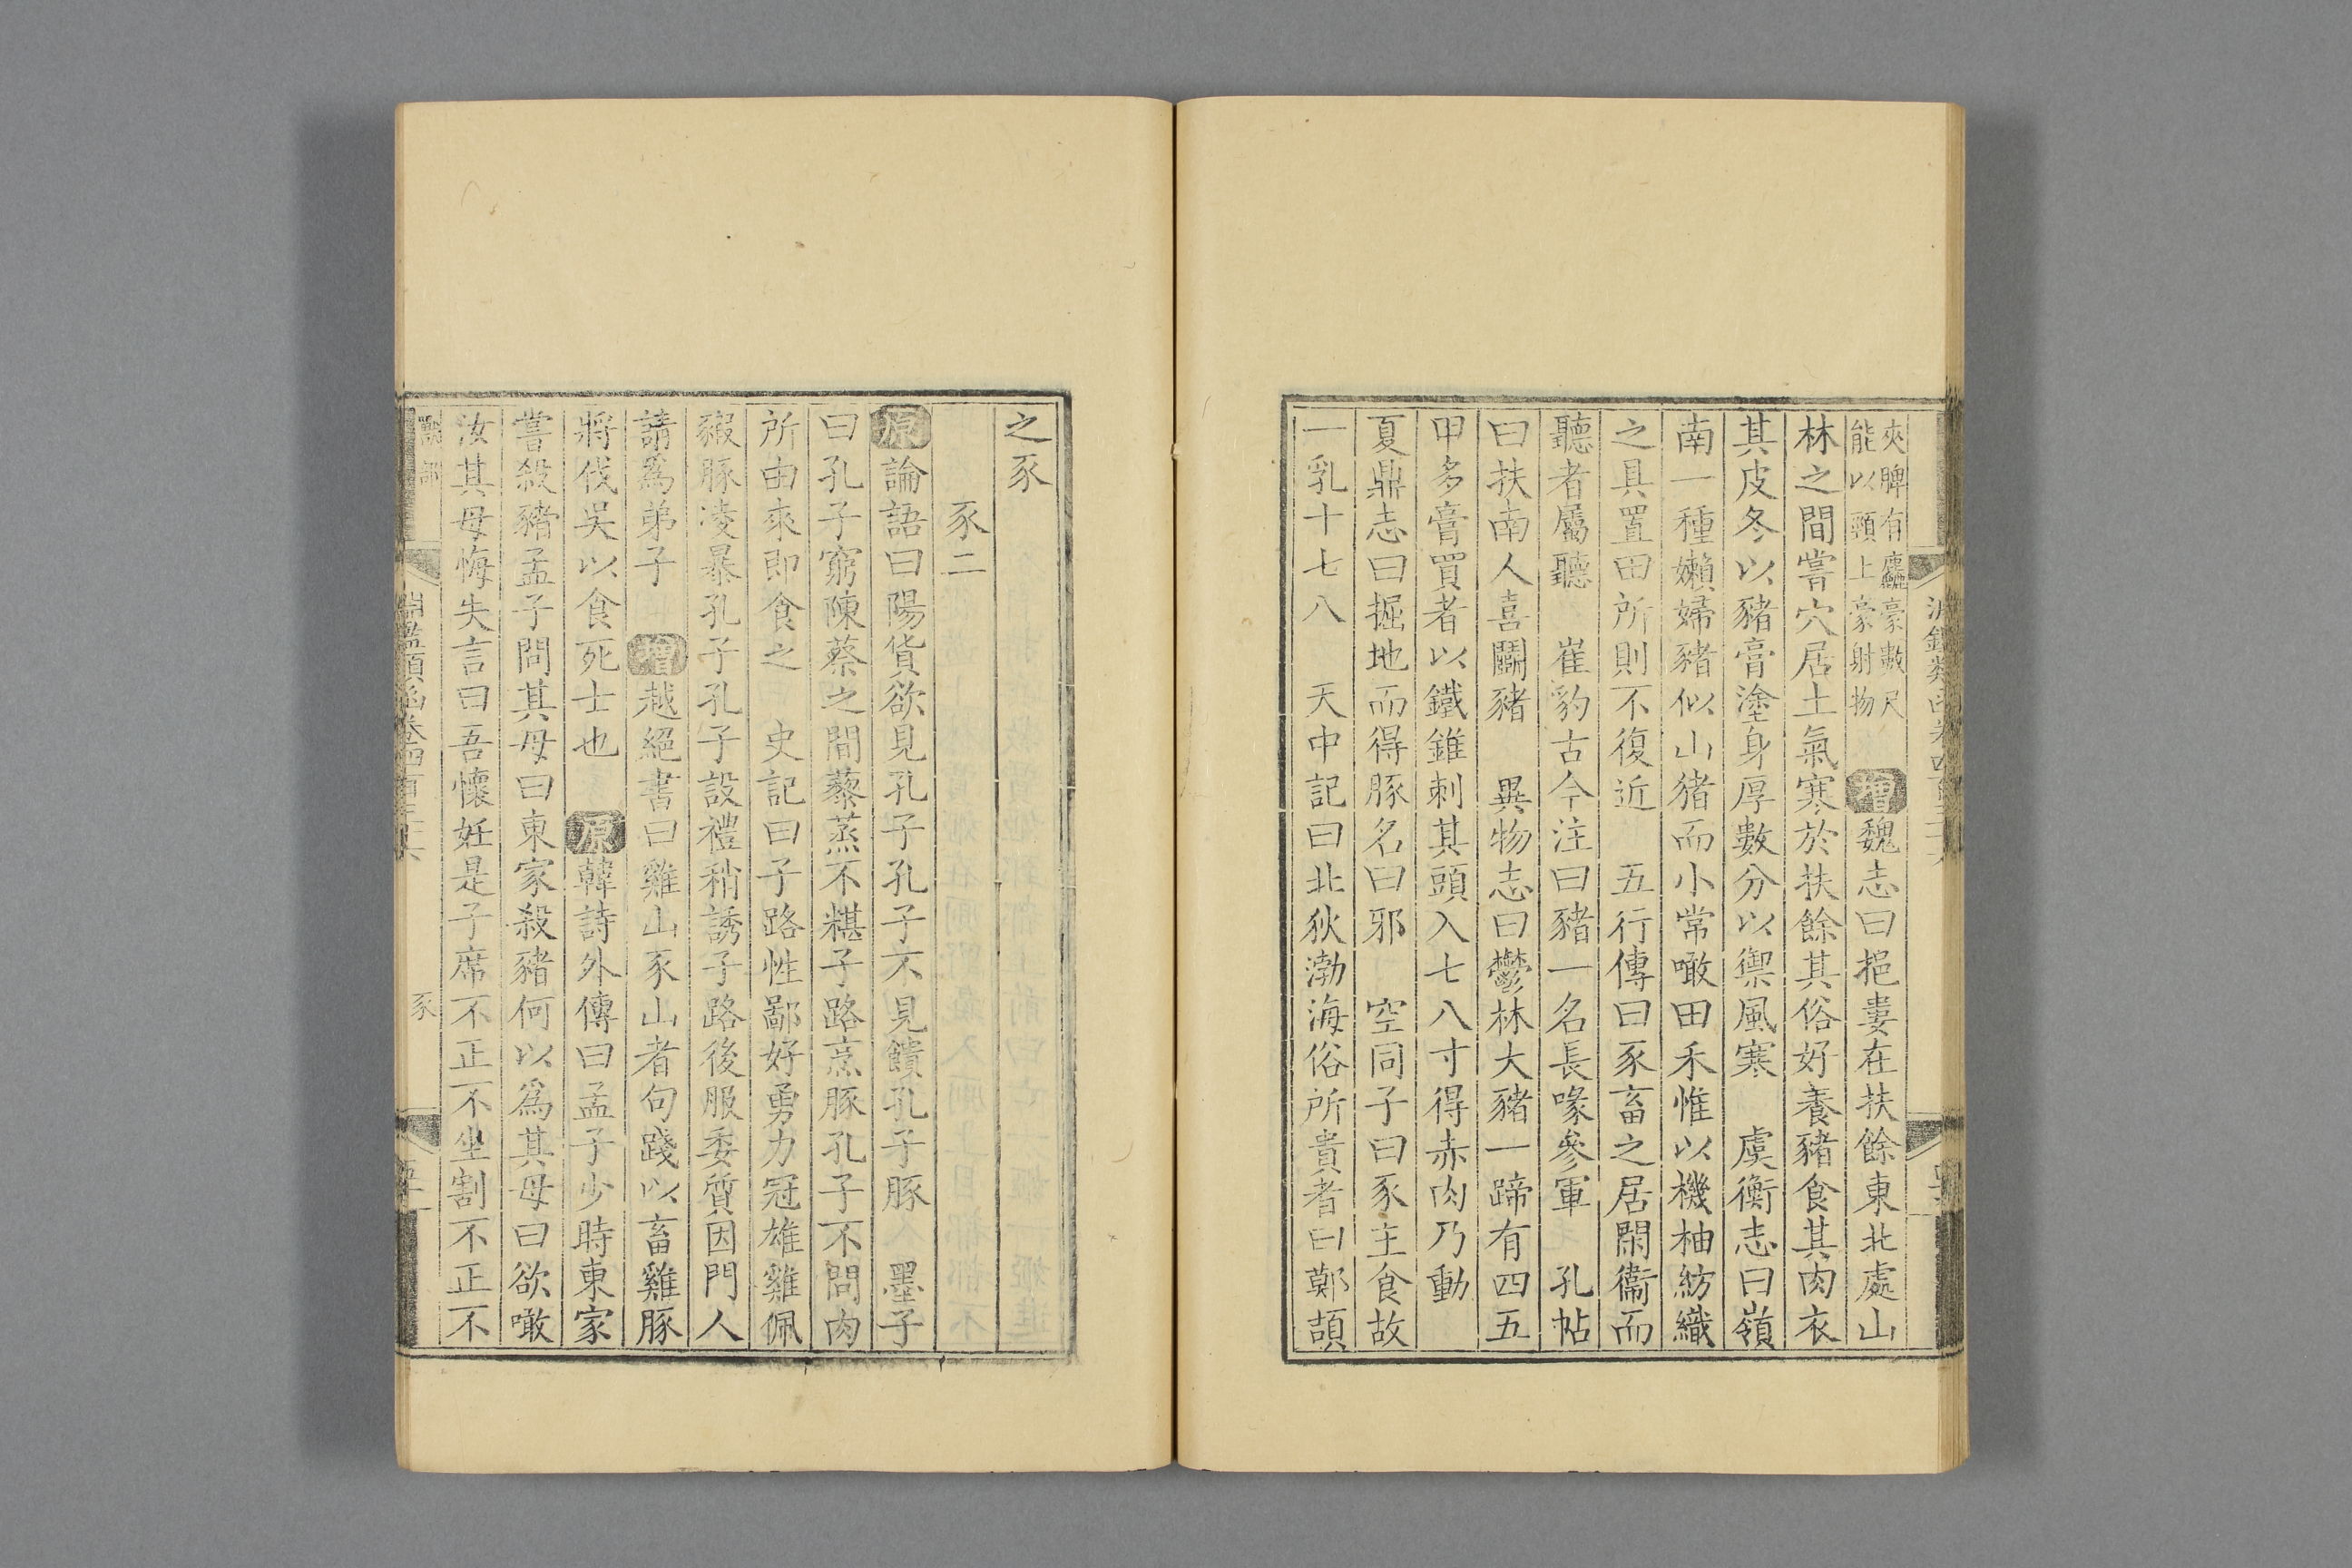 夾脾有麤豪數尺
能以頸上豪射物
增魏志曰挹婁在扶餘東北處山
林之間嘗穴居土氣寒於扶餘其俗好養豬食其肉衣
其皮冬以豬膏塗身厚數分以禦風寒 虞衡志曰嶺
南一種嬾婦豬似山猪而小常噉田禾惟以機柚紡織
之具置田所則不復近 五行傳曰豕畜之居閑衞而
聽者屬聽 崔豹古今注曰豬一名長喙參軍 孔帖
曰扶南人喜鬭豬 異物志曰鬱林大豬一蹄有四五
甲多膏買者以鐵錐刺其頭入七八寸得赤肉乃動
夏鼎志曰掘地而得豚名曰邪 空同子曰豕主食故
一乳十七八 天中記曰北狄渤海俗所貴者曰鄚頡
之豕
豕二
原論語曰陽貨欲見孔子孔子不見饋孔子豚 墨子
曰孔子窮陳蔡之間藜蒸不糂子路烹豚孔子不問肉
所由來即食之 史記曰子路性鄙好勇力冠雄雞佩
豭豚凌暴孔子孔子設禮稍誘子路後服委質因門人
請爲弟子 增越絕書曰雞山豕山者句踐以畜雞豚
將伐吳以食死士也 原韓詩外傳曰孟子少時東家
嘗殺豬孟子問其母曰東家殺豬何以爲其母曰欲噉
汝其母悔失言曰吾懷妊是子席不正不坐割不正不
獸部
豕